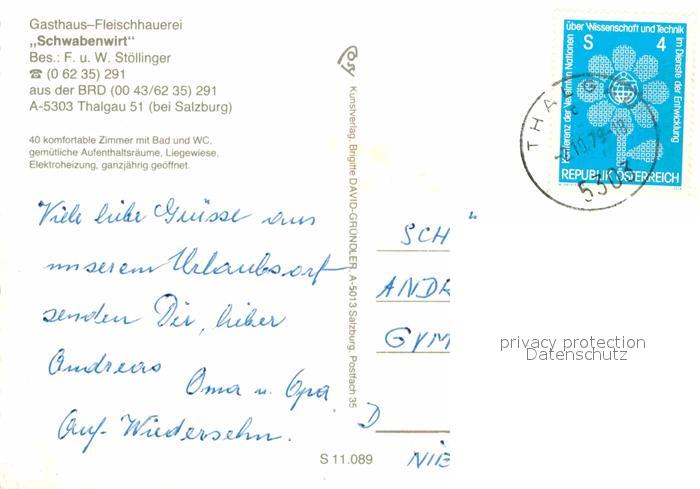 Gasthaus–Fleischhauerei
„Schwabenwirt“
Bes.: F. u. W. Stöllinger
☎ (0 62 35) 291
aus der BRD (00 43/62 35) 291
A-5303 Thalgau 51 (bei Salzburg)
40 komfortable Zimmer mit Bad und WC,
gemütliche Aufenthaltsräume, Liegewiese,
Elektroheizung, ganzjährig geöffnet.
Viele liebe Grüsse aus
unserem Urlaubsort
senden Dir, lieber
Andreas
Oma u. Opa.
Auf Wiedersehn.
Kunstverlag, Brigitte DAVID-GRÜNDLER, A-5013 Salzburg, Postfach 35
S 11.089
Konferenz der Vereinten Nationen
über Wissenschaft und Technik
im Dienste der Entwicklung
S 4
REPUBLIK ÖSTERREICH
10.79
5303
SCH
ANDR
GYM
D
NIE
privacy protection
Datenschutz